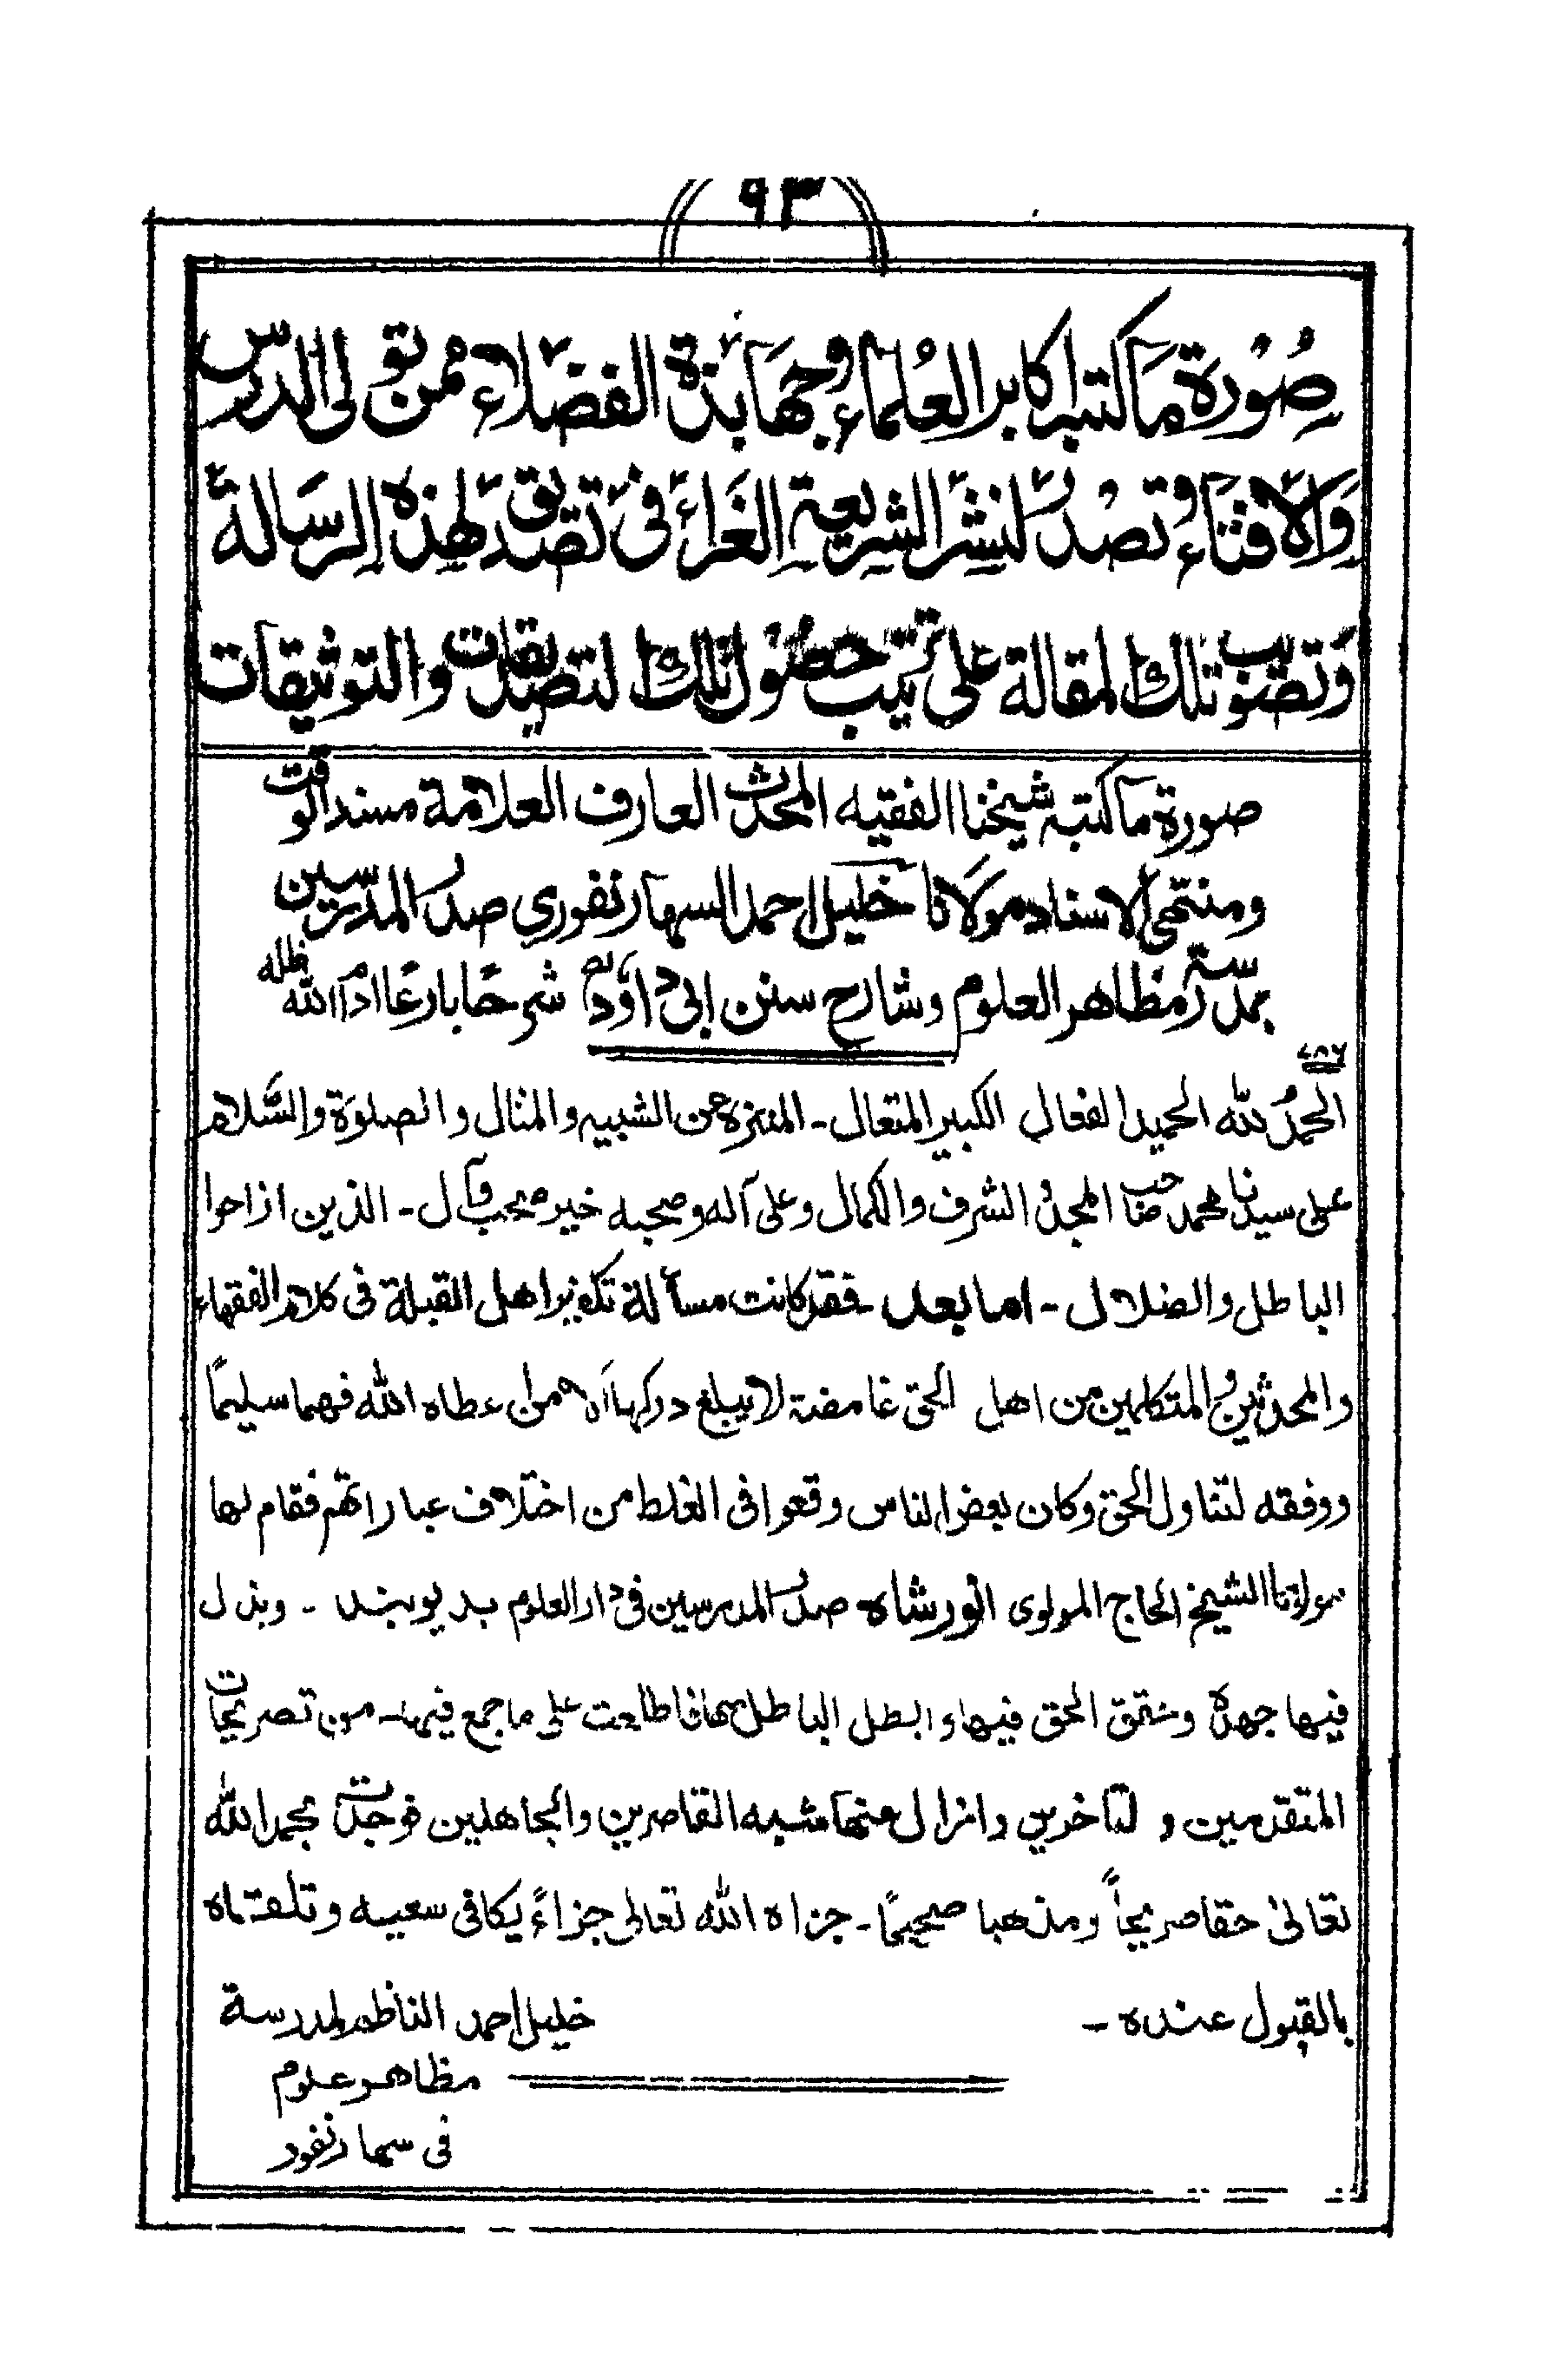 ٩٣
صُوْرة مَا كتبہ اكابر العُلماء وجهَابذة الفضَلاء ممن تولى الدرس
وَالافتاء وتصدر لنشر الشريعة الغراء فى تصديق لهذه الرسالة
وَتصويب تلك المقالة على ترتيب حصُول تلك التصديقات والتوثيقات
صورة ما كتبہ شيخنا الفقيه المحدث العارف العلامة مسند الوقت
ومنتهى الاسناد مولانا خليل احمد السهارنفوري صدر المدرسين
بمدرسة مظاهر العلوم وشارح سنن ابى داؤد شرحًا بارعًا ادام الله ظله
٧٨٦
الحمدُ لله الحميد الفعال الكبير المتعال ـ المنزه عن الشبيه والمثال و الصلوة والسَّلام
على سيدنا محمد صاحب المجد والشرف والكمال وعلى آله وصحبه خير صحب وآل ـ الذين ازاحوا
الباطل والضلال ـ اما بعد ـ فقد كانت مسألة تكفير اهل القبلة فى كلام الفقهاء
والمحدثين والمتكلمين من اهل الحق غامضة لا يبلغ دركها الا من اعطاه الله فهما سليمًا
ووفقه لتناول الحق وكان بعض الناس وقعوا فى الغلط من اختلاف عباراتهم فقام لها
مولانا الشيخ الحاج المولوى انور شاه صدر المدرسين فى دار العلوم بديوبند ـ وبذل
فيها جهده وحقق الحق فيها و ابطل الباطل فطالعت على ما جمع فيها ـ من تصريحات
المتقدمين و المتاخرين وازال عنها شبه القاصرين والجاهلين فوجدت بحمد الله
تعالىٰ حقا صريحاً ومذهبا صحيحًا ـ جزاه الله تعالى جزاءً يكافى سعيه وتلقاه
بالقبول عنده ـ
خليل احمد الناظم لمدرسة
مظاهر علوم
فى سهارنفور